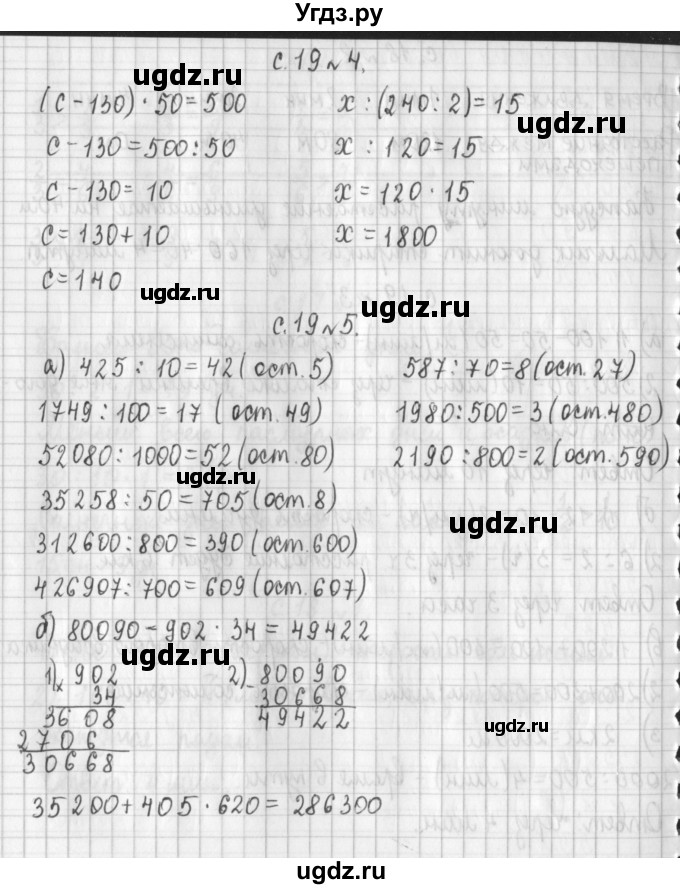 Угдз.ру
с.19 № 4.
(c-130) · 50 = 500 x : (240 : 2) = 15
c-130 = 500 : 50 x : 120 = 15
c-130 = 10 x = 120 · 15
c = 130 + 10 x = 1800
c = 140
с.19 № 5.
а) 425 : 10 = 42 (ост. 5) 587 : 70 = 8 (ост. 27)
1749 : 100 = 17 (ост. 49) 1980 : 500 = 3 (ост. 480)
52080 : 1000 = 52 (ост. 80) 2190 : 800 = 2 (ост. 590)
35258 : 50 = 705 (ост. 8)
312600 : 800 = 390 (ост. 600)
426907 : 700 = 609 (ост. 607)
б) 80090 - 902 · 34 = 49422
1) × 902 2) - 80090
34 30668
3608 49422
2706
30668
35200 + 405 · 620 = 286300
ugdz.ru
ugdz.ru
ugdz.ru
ugdz.ru
ugdz.ru
ugdz.ru
ugdz.ru
ugdz.ru
ugdz.ru
ugdz.ru
ugdz.ru